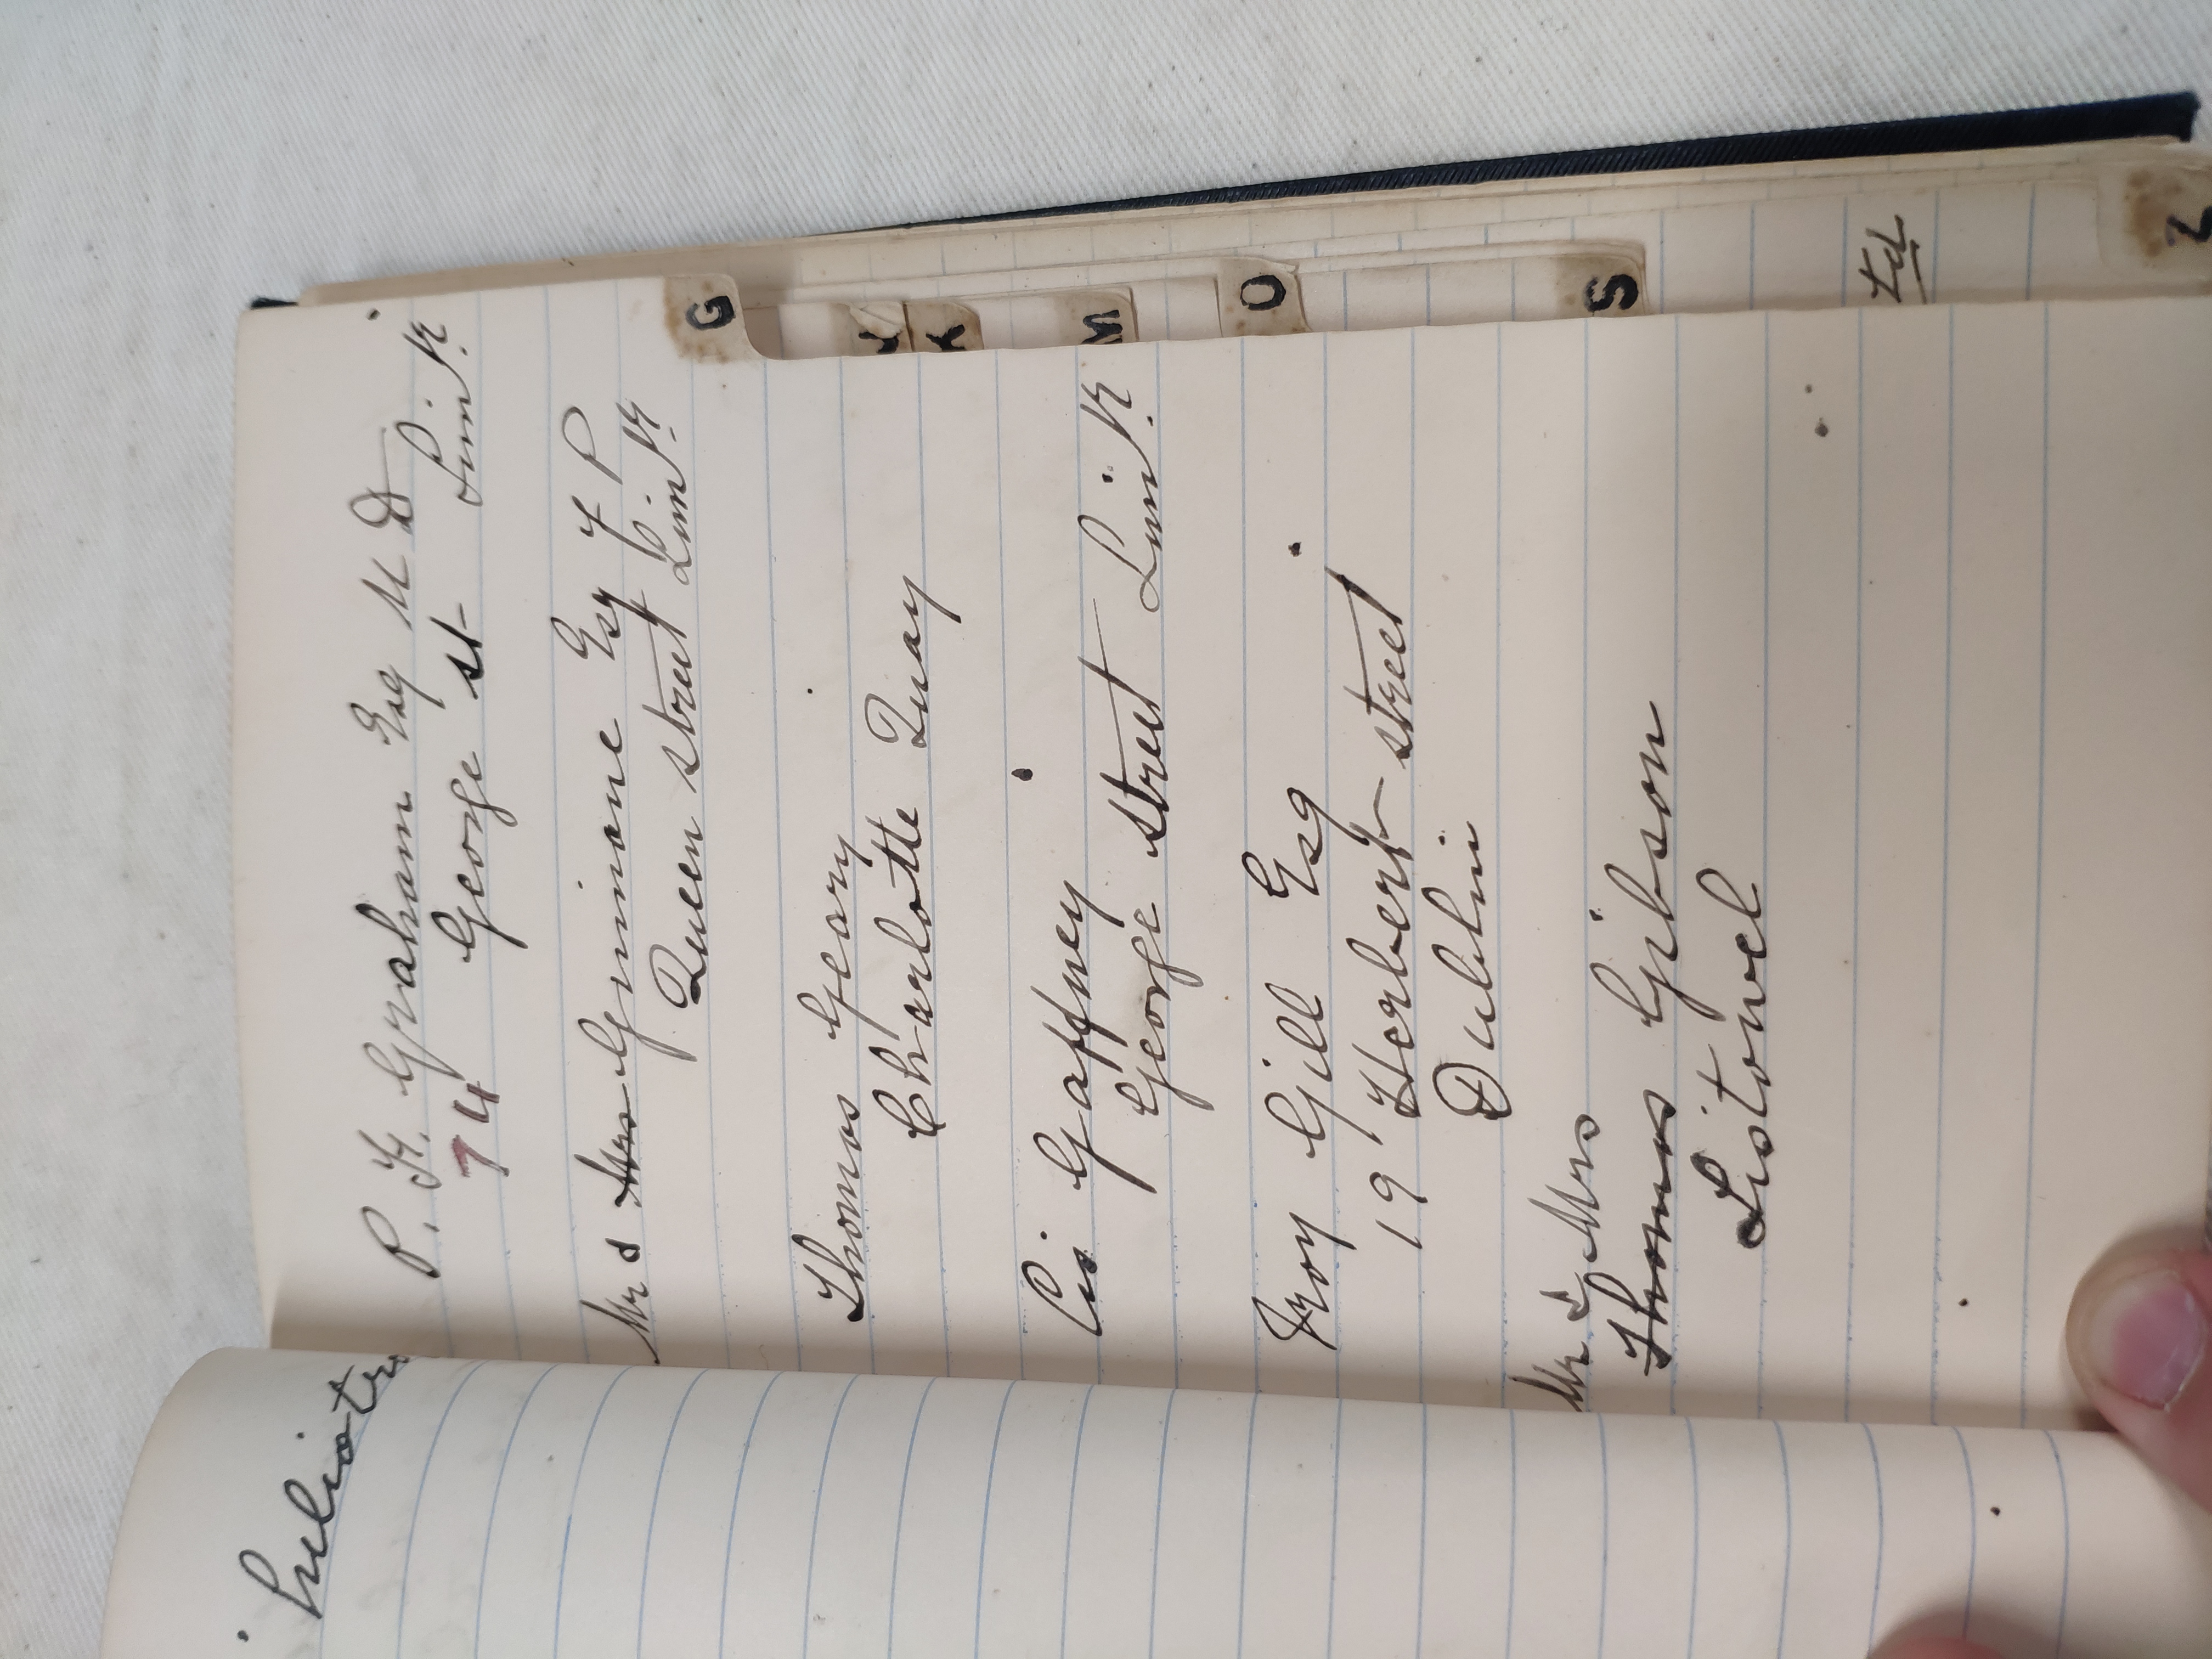 P. F. Graham Esq M D
74 George st Lim.k.
Mr & Mrs Ginnane Esq J P
Queen street Lim.k.
Thomas Geary
Charlotte Quay
Cis Gaffney
George street Lim.k.
Troy Gill Esq
19 Herbert street
Dublin
Mr & Mrs
Thomas Gibson
Listowel
G
K
M
O
S